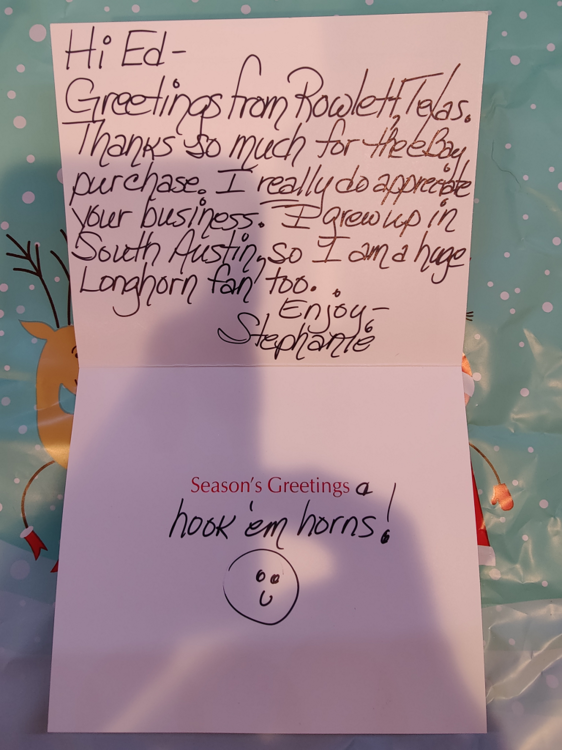 Hi Ed-
Greetings from Rowlett, Texas.
Thanks so much for the eBay
purchase. I really do appreciate
your business. I grew up in
South Austin, so I am a huge
Longhorn fan too.
Enjoy-
Stephanie
Season's Greetings a
hook 'em horns!